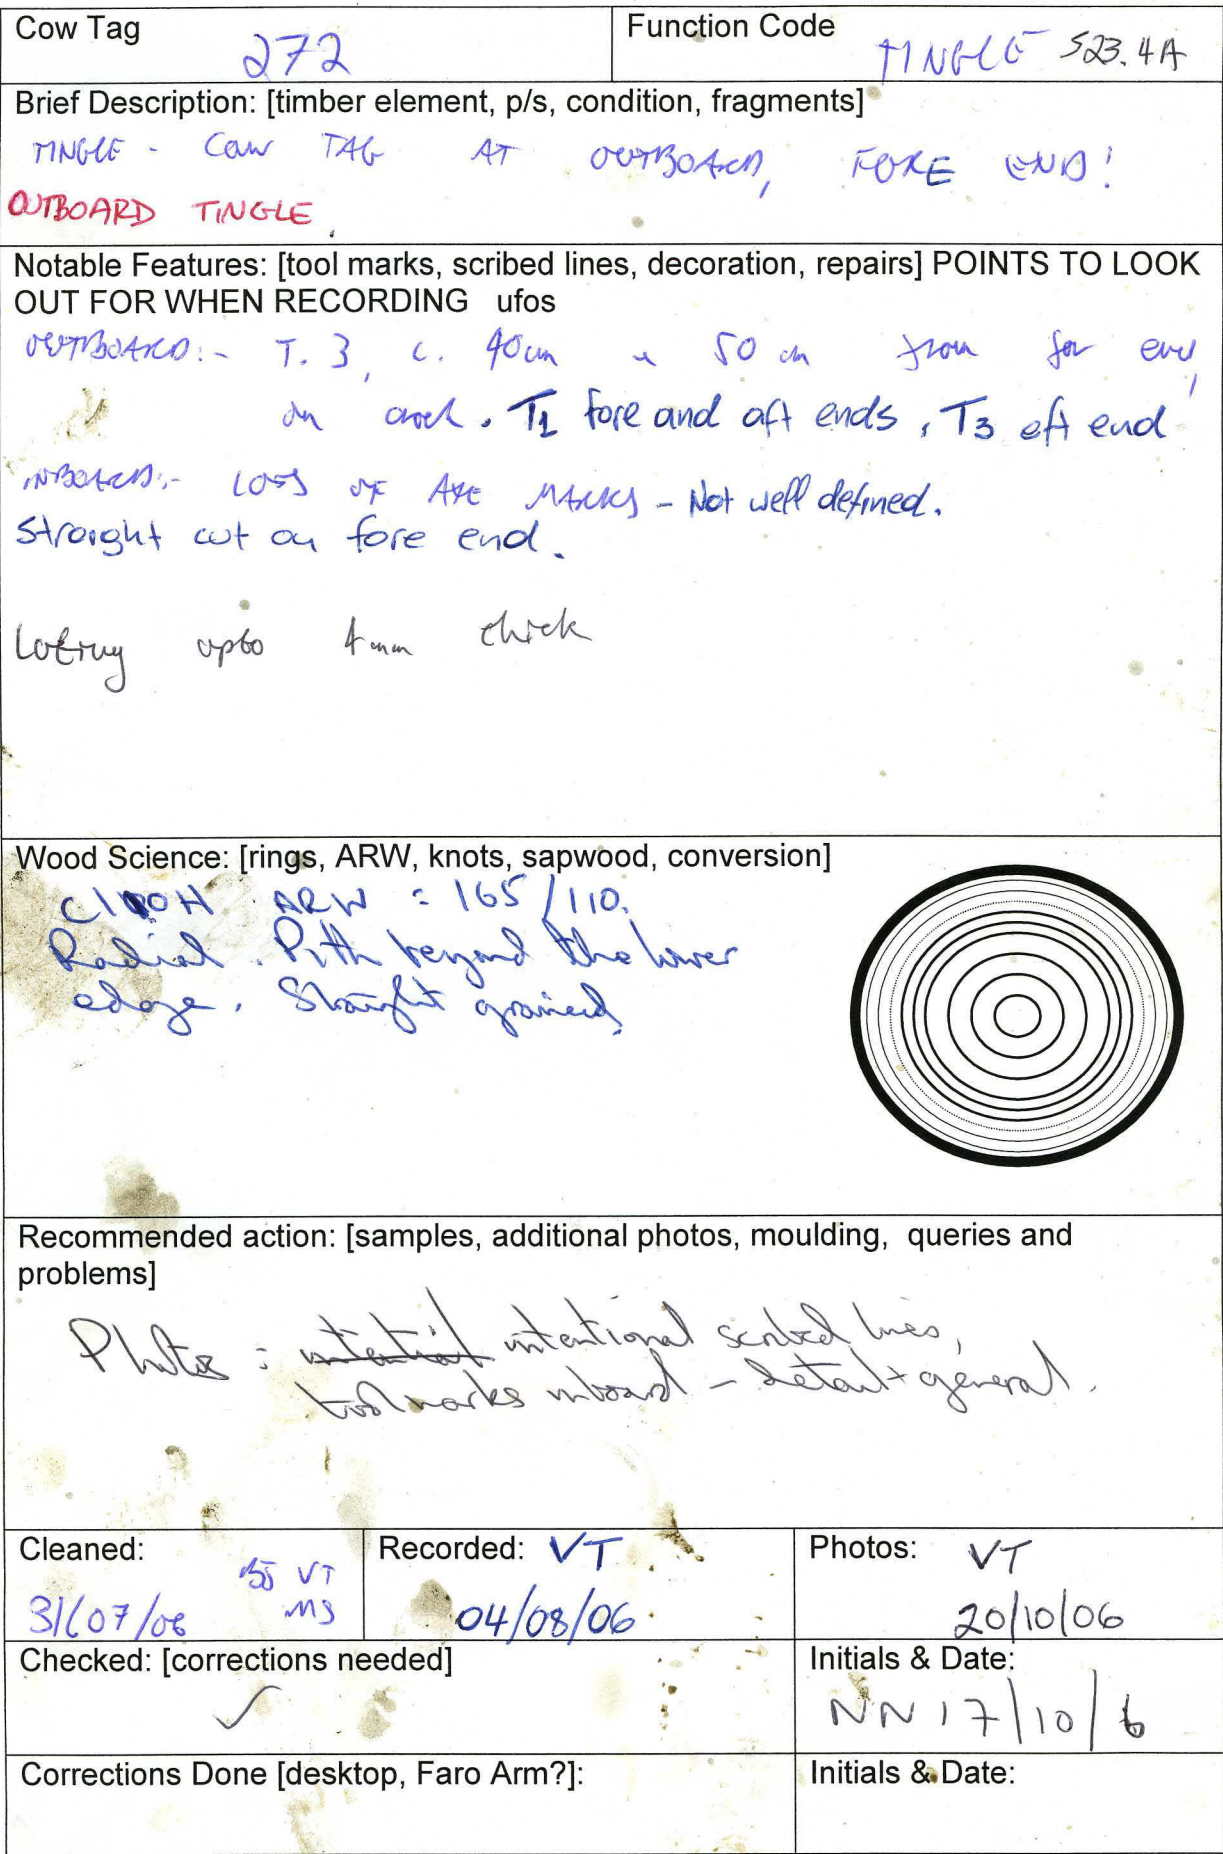 Cow Tag
272
Function Code
TINGLE S23.4A
Brief Description: [timber element, p/s, condition, fragments]
TINGLE - COW TAG AT OUTBOARD, FORE END!
OUTBOARD TINGLE.
Notable Features: [tool marks, scribed lines, decoration, repairs] POINTS TO LOOK
OUT FOR WHEN RECORDING ufos
OUTBOARD:- T. 3, c. 40cm 50 cm from for end,
on . T1 fore and aft ends, T3 aft end
INBOARD:- LOTS OF AXE MARKS - Not well defined.
Straight cut on fore end.
upto 4mm thick
Wood Science: [rings, ARW, knots, sapwood, conversion]
ARW = 165/110.
Radial. Pith beyond the lower
edge. Straight grained.
Recommended action: [samples, additional photos, moulding, queries and
problems]
Photos : intentional scribed lines,
toolmarks inboard - detail + general.
Cleaned:
VT
31/07/06 MS
Recorded: VT
04/08/06
Photos: VT
20/10/06
Checked: [corrections needed]
✓
Initials & Date:
NN 17/10/6
Corrections Done [desktop, Faro Arm?]:
Initials & Date: